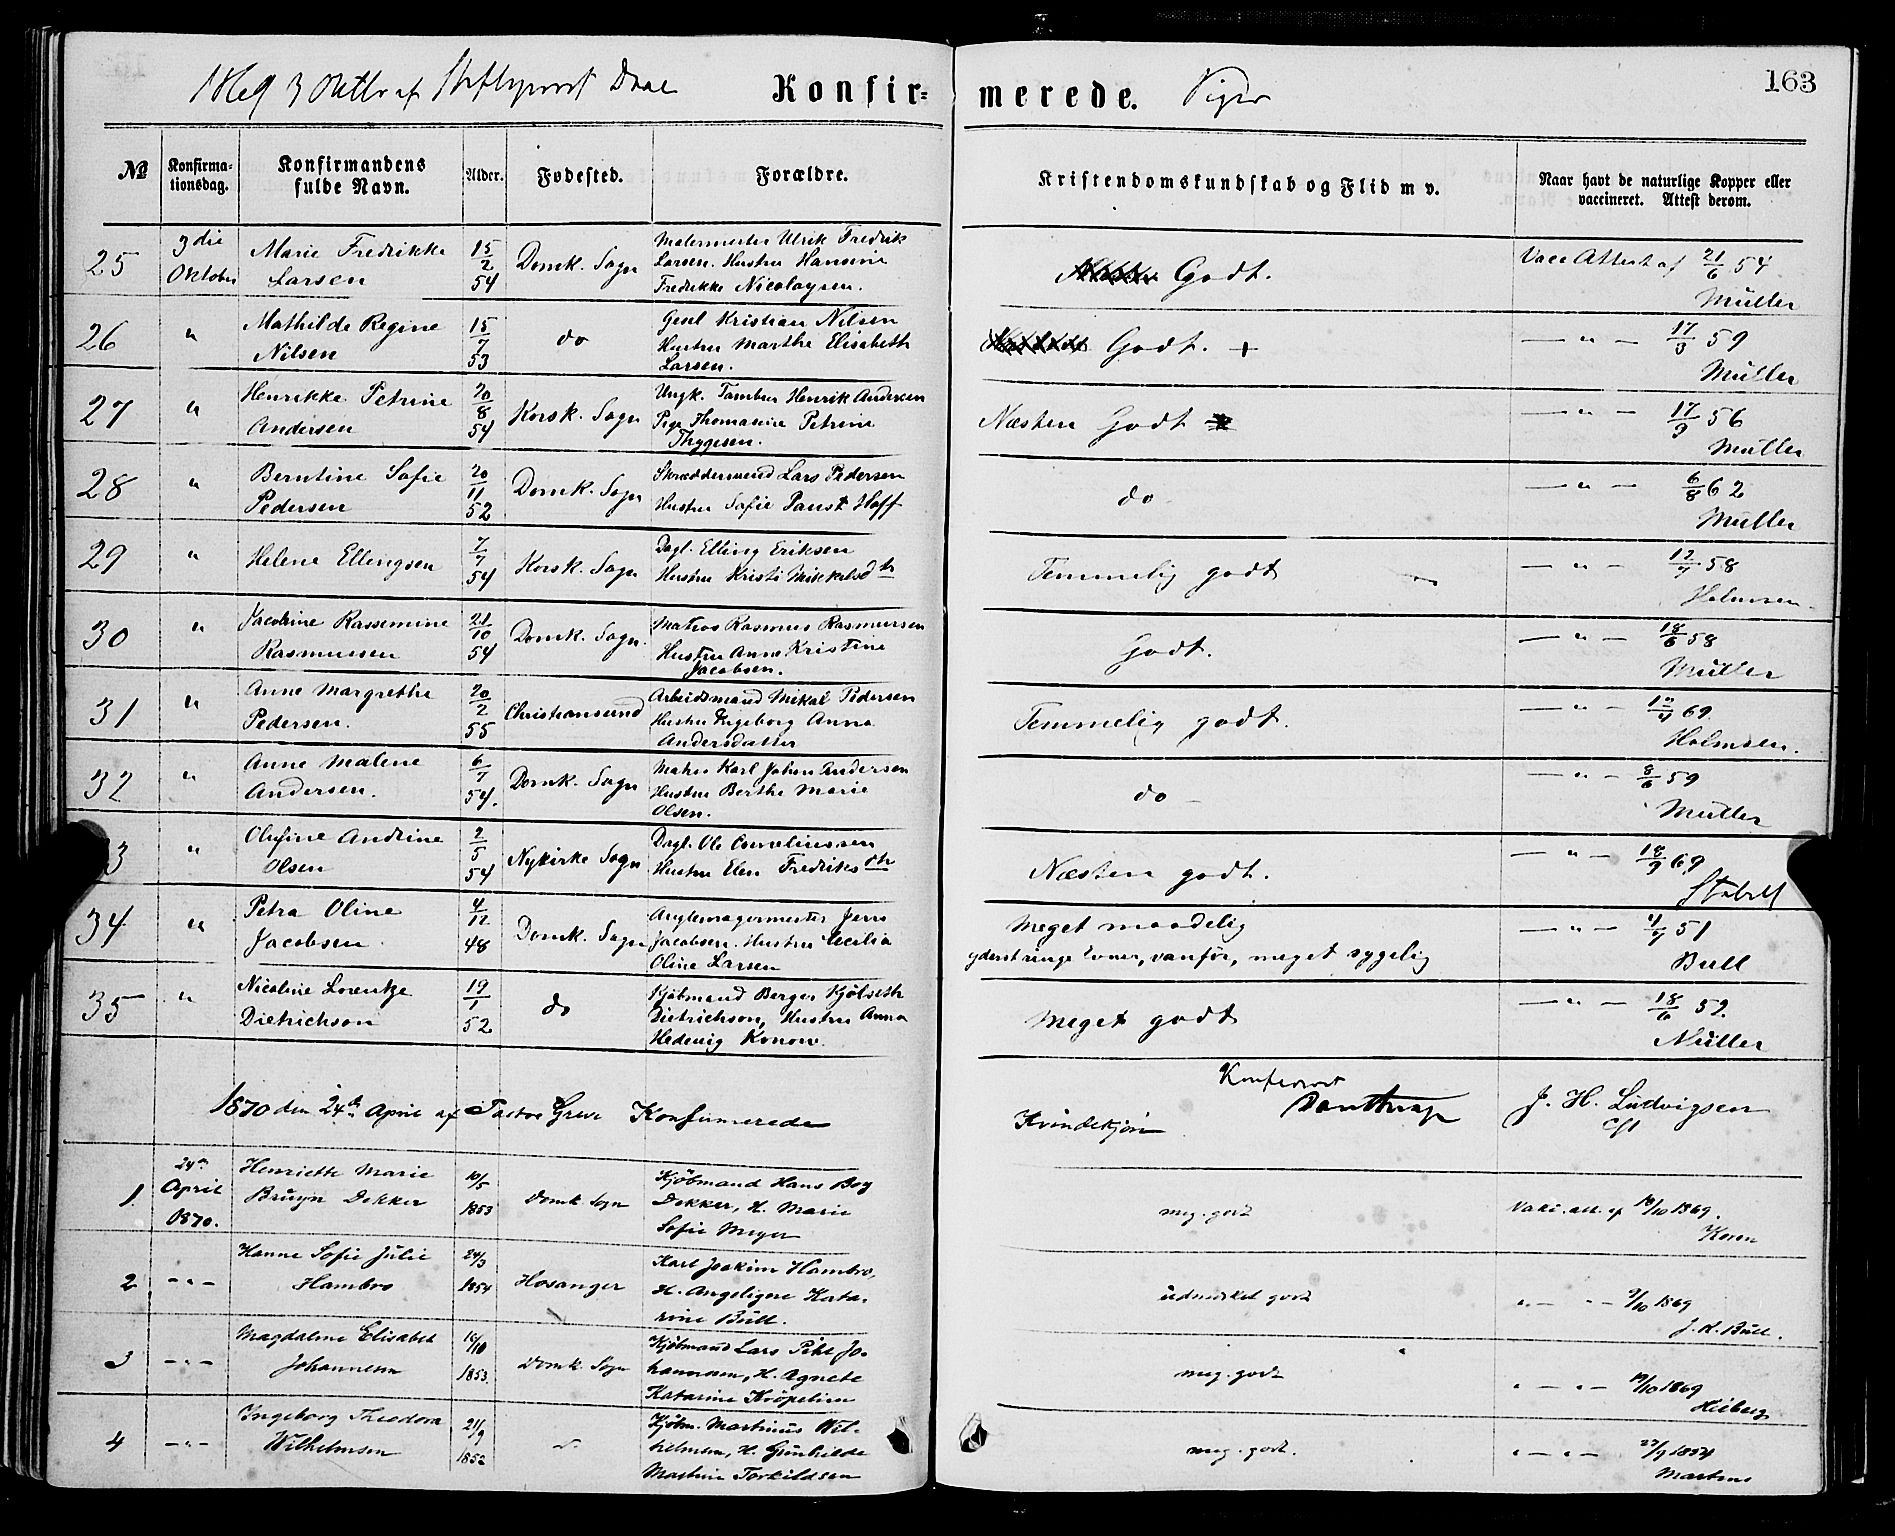 1869 3 Oktbr af Stiftsprovst Daae Konfir= merede. Piger 163
№ Konfirma=tionsdag. Konfirmandens fulde Navn. Alder. Fødested. Forældre. Kristendomskundskab og Flid m v. Naar havt de naturlige Kopper eller vaccineret. Attest derom.
25 3die Marie Fredrikke 15/2 Domk. Sogn Malermester Ulrik Fredrik Godt. Vacc Attest af 21/6 54
Oktober Larsen 54 Larsen. Hustru Hansine Müller
Fredrikke Nicolaysen.
26 " Mathilde Regine 15/7 do Gesel Kristian Nilsen Godt. + — " — 17/3 59
Nilsen 53 Hustru Marthe Elisabeth Müller
Larsen.
27 " Henrikke Petrine 20/8 Korsk. Sogn Ungk. Tambur Henrik Andersen Næsten Godt — " — 17/9 56
Andersen 54 Pige Thomasine Petrine Müller
Thygesen.
28 " Berntine Sofie 20/11 Domk. Sogn Skræddersvend Lars Pedersen do — " — 6/8 62
Pedersen 52 Hustru Sofie Hoff Müller
29 " Helene Ellingsen 7/7 Korsk. Sogn Dagl. Elling Eriksen Temmelig godt — " — 12/7 58
54 Hustru Kristi Mikkelsdtr Holmsen.
30 " Jacobine Rassemine 21/10 Domk. Sogn. Matros Rasmus Rasmussen Godt. — " — 18/6 58
Rasmussen 54 Hustru Anne Kristine Müller
Jacobsen.
31 " Anne Margrethe 20/2 Christiansund Arbeidsmand Mikal Pedersen Temmelig godt. — " — 69.
Pedersen. 55 Hustru Ingeborg Anna Holmsen.
Andersdatter
32 " Anne Malene 6/7 Domk. Sogn Karl Johan Andersen do — " — 8/6 59
Andersen. 54. Hustru Berthe Marie Müller
Olsen.
3 " Olufine Andrine 2/5 Nykirke Sogn Dagl. Ole Corneliussen Næsten godt. — " — 18/9 69
Olsen 54 Hustru Elen Fredriksdtr
34 " Petra Oline 4/12 Domk. Sogn Jens Meget maadelig — " — 51
Jacobsen. 48 Jacobsen. Hustru Cecilia yderst ringe Evner, vanfør, meget sygelig Bull
Oline Larsen
35 " Nicoline Lorentze 19/1 do Kjøbmand Berger Kjølseth Meget godt — " — 18/6 52.
Dietrichson 52 Dietrichson, Hustru Anna Müller
Hedevig Konow.
1870 den 24de April af Pastor Greve Konfirmerede Kvindekjøn Konfereret J. H. Ludvigsen
cst
1. 24de Henriette Marie 10/5 Domk. Sogn Kjøbmand Hans Boy meg. godt Vakc. att. af 19/10 1869.
April Bruyn Dekker 1853 Dekker, H. Marie Koren
1870. Sofie Meyer
2 — " — Hanne Sofie Julie 24/3 Hosanger Karl Joakim Hambro, udmerket godt " — " — 9/10 1869
Hambro 1854 H. Angeligue Kata- J. K. Bull.
rine Bull.
3 — " — Magdalene Elisabet 16/10 Domk. Sogn Kjøbmand Lars Pihl Jo- meg. godt " — " — 19/10 1869
Johannesen 1853. hannesen, H. Agnete Heiberg
Katarine Krøpelien
4 — " — Ingeborg Theodora 21/9 Kjøbm. Martinus Wil- meg. godt. " — " — 27/9 1854
Wilhelmsen 1852 helmsen, H. Gunhilde Martens
Martine Torkildsen